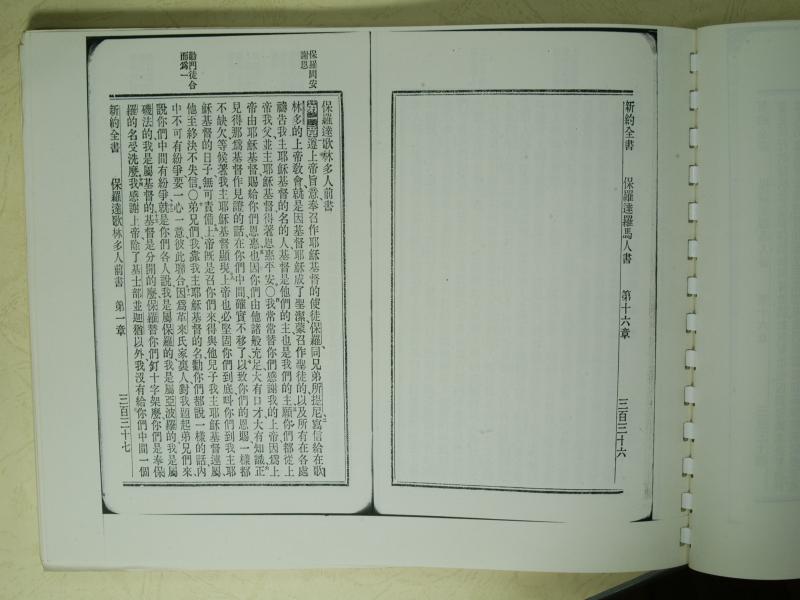 新約全書 保羅達羅馬人書 第十六章 三百三十六
保羅問安
謝恩
勸門徒合
而爲一
保羅達歌林多人前書
第一章遵上帝旨意奉召作耶穌基督的使徒保羅同兄弟所提尼寫信給在歌
林多的上帝教會就是因基督耶穌成了聖潔蒙召作聖徒的以及所有在各處
禱告我主耶穌基督的名的人基督是他們的主也是我們的主願你們都從上
帝我父並主耶穌基督得著恩惠平安〇我常常替你們感謝我的上帝因爲上
帝由耶穌基督賜給你們恩惠也因你們由他諸般充足大有口才大有知識正
見得那爲基督作見證的話在你們中間確實不移了以致你們的恩賜一樣都
不缺欠等候著我主耶穌基督顯現上帝也必堅固你們到底叫你們到我主耶
穌基督的日子無可責備上帝既是召你們來得與他兒子我主耶穌基督連屬
他至終決不失信〇弟兄們我靠我主耶穌基督的名勸你們都說一樣的話內
中不可有紛爭要一心一意彼此聯合因爲革來氏家裏人對我題起弟兄們來
說你們中間有紛爭就是你們各人說我是屬保羅的我是屬亞波羅的我是屬
磯法的我是屬基督的基督是分開的麼保羅替你們釘十字架麼你們是奉保
羅的名受洗麼我感謝上帝除了基士部並迦猶以外我沒有給你們中間一個
新約全書 保羅達歌林多人前書 第一章 三百三十七